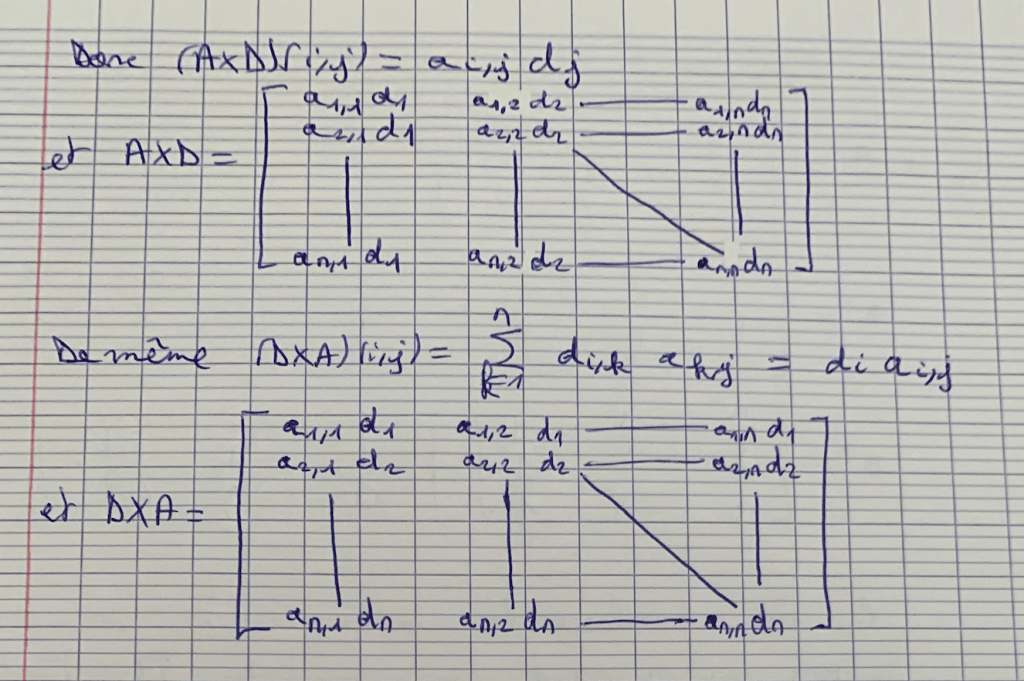 Donc (A×D)(i,j) = a_{i,j} d_j
et A×D = \begin{bmatrix} a_{1,1} d_1 & a_{1,2} d_2 & — & a_{1,n} d_n \\ a_{2,1} d_1 & a_{2,2} d_2 & — & a_{2,n} d_n \\ | & | & \diagdown & | \\ a_{n,1} d_1 & a_{n,2} d_2 & — & a_{n,n} d_n \end{bmatrix}
De même (D×A)(i,j) = \sum_{k=1}^{n} d_{i,k} a_{k,j} = d_i a_{i,j}
et D×A = \begin{bmatrix} a_{1,1} d_1 & a_{1,2} d_1 & — & a_{1,n} d_1 \\ a_{2,1} d_2 & a_{2,2} d_2 & — & a_{2,n} d_2 \\ | & | & \diagdown & | \\ a_{n,1} d_n & a_{n,2} d_n & — & a_{n,n} d_n \end{bmatrix}